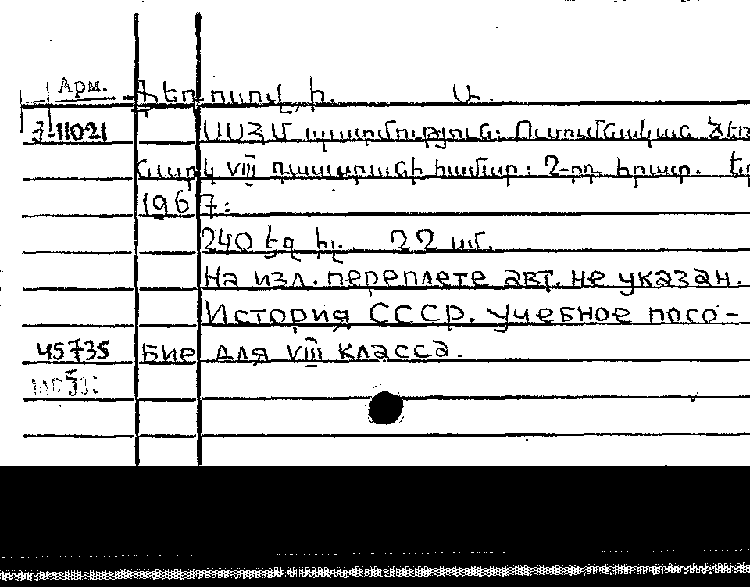 Арм. Ֆեդոսով, Ի. Ա.
3-11021 ՍՍՀՄ պատմություն: Ուսումնական ձեռ
նարկ VIII դասարանի համար: 2-րդ. հրատ. Եր
1967:
240 էջ իլ. 22 սմ.
На изл. переплете авт. не указан.
История СССР. учебное посо-
45735 бие для VIII класса.